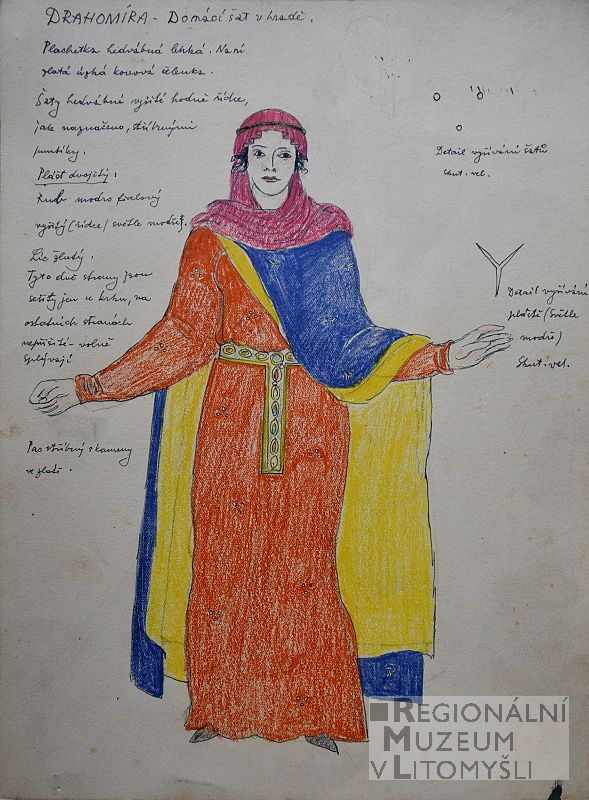 DRAHOMÍRA - Domácí šat v hradě.
Plachetka hedvábná lehká. Na ní
zlatá úzká kovová čelenka.
Šaty hedvábné vyšité hodně řídce,
jak naznačeno, stříbrnými
puntíky.
Plášť dvojitý:
Rub modro fialový
vyšitý (řídce) světle modře.
Líc žlutý.
Tyto dvě strany jsou
sešity jen u krku, na
ostatních stranách
nepřišité - volně
splývají
Pas stříbrný s kameny
ve zlatě.
Detail vyšívání šatů
skut. vel.
Detail vyšívání
pláště (Světle
modře)
Skut. vel.
REGIONÁLNÍ
MUZEUM
V LITOMYŠLI